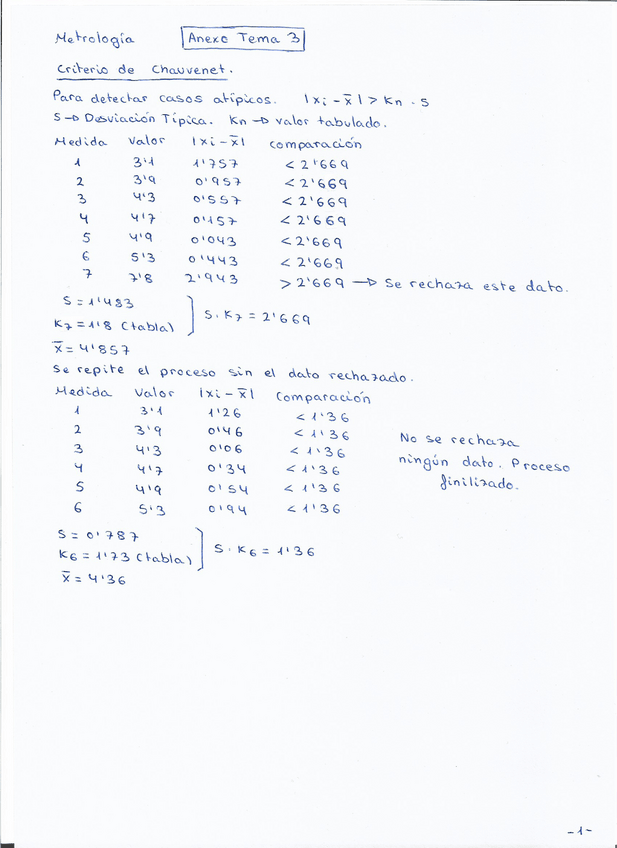 Metrología Anexo Tema 3
Criterio de Chauvenet.
Para detectar casos atípicos. |xi - x̄| > Kn · S
S → Desviación Típica. Kn → Valor tabulado.
Medida Valor |xi - x̄| Comparación
1 3'1 1'757 < 2'669
2 3'9 0'957 < 2'669
3 4'3 0'557 < 2'669
4 4'7 0'157 < 2'669
5 4'9 0'043 < 2'669
6 5'3 0'443 < 2'669
7 7'8 2'943 > 2'669 → Se rechaza este dato.
S = 1'483
K7 = 1'8 (tabla) S · K7 = 2'669
x̄ = 4'857
Se repite el proceso sin el dato rechazado.
Medida Valor |xi - x̄| Comparación
1 3'1 1'26 < 1'36
2 3'9 0'46 < 1'36
3 4'3 0'06 < 1'36
4 4'7 0'34 < 1'36
5 4'9 0'54 < 1'36
6 5'3 0'94 < 1'36
No se rechaza
ningún dato. Proceso
finilizado.
S = 0'787
K6 = 1'73 (tabla) S · K6 = 1'36
x̄ = 4'36
-1-